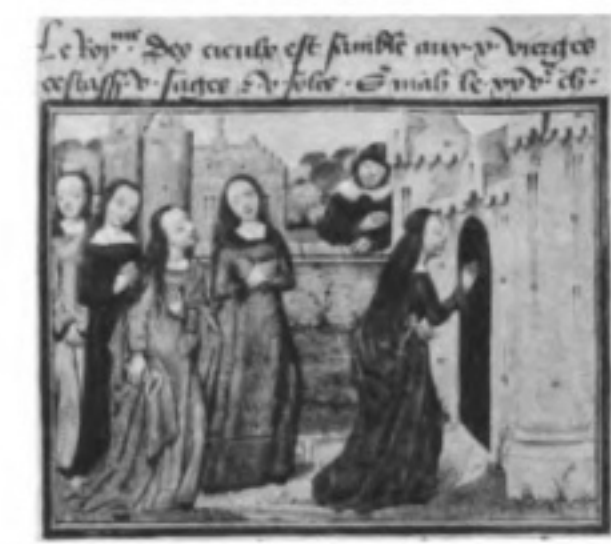 Le Roy.me Des cieulx est samblé aux .v. vierges
.v. sages & .v. foles . S. mah le xxv.e ch.